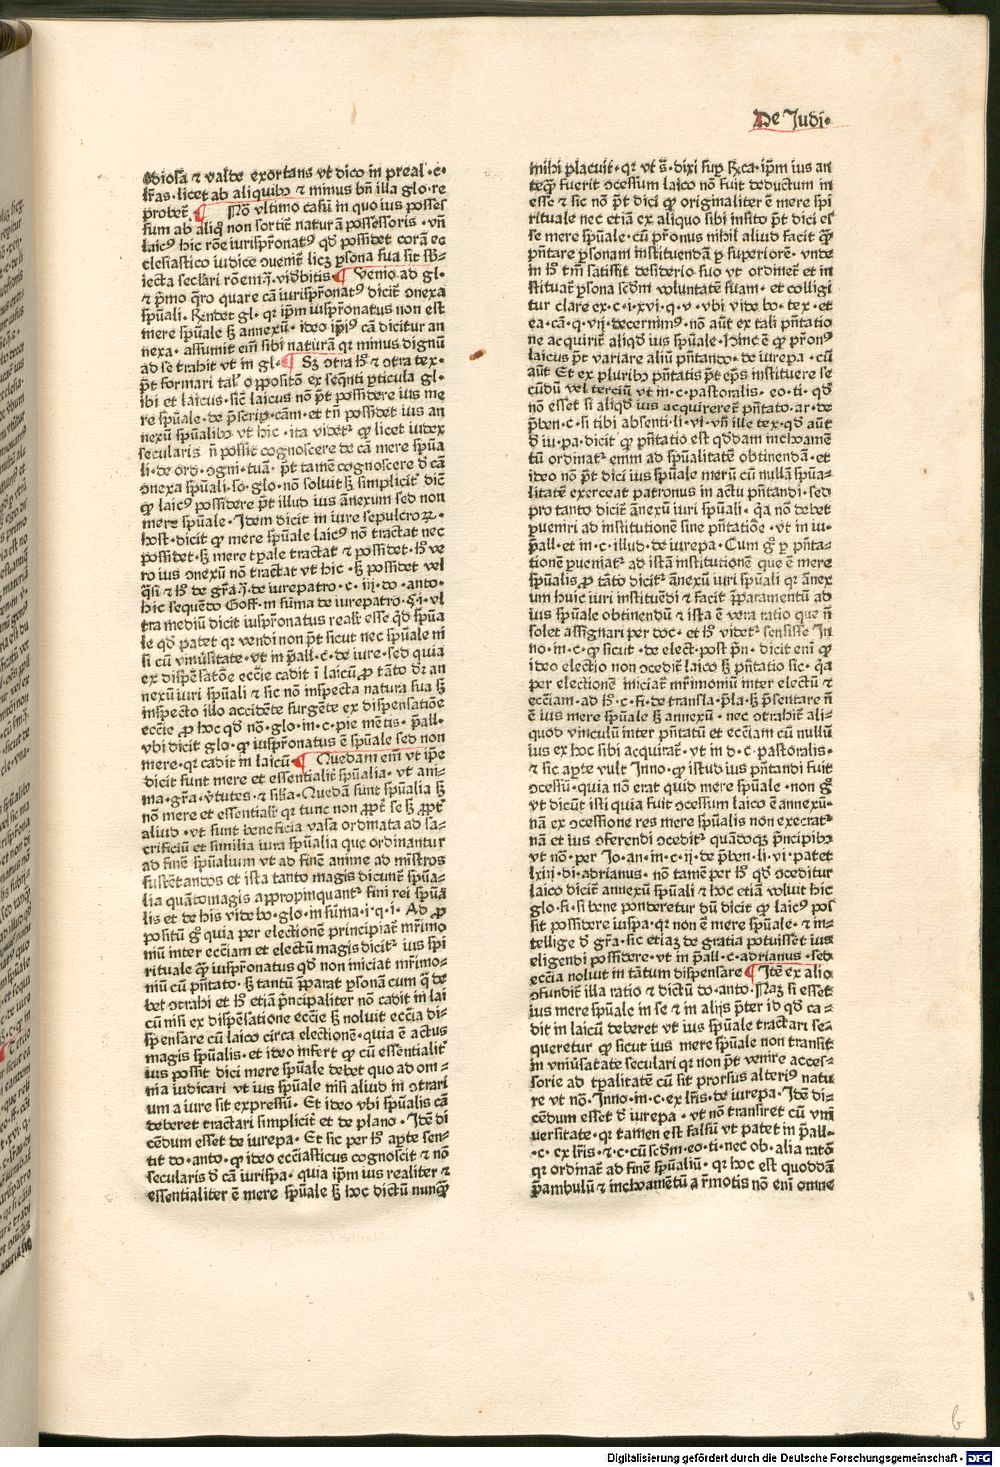 De Judi·
odiosa ⁊ valde exortans vt dico in preal·c·
lr̄as·licet ab aliquibꝫ ⁊ minus bn̄ illa glo·re
probet᷑ Nō vltimo casū in quo ius posses
sum ab aliqͦ non sortit᷑ naturā possessoris·vn̄
laicꝰ hic rōne iurispr̄onatꝰ qd̄ possidet corā ec
clesiastico iudice
iecta seclari Venio ad gl·
⁊ p̄mo q̄ro quare cā iurispr̄onatꝰ dicit᷑ ↄnexa
spūali·Rn̄det gl·qꝛ ip̄m iuspr̄onatus non est
mere spūale sꝫ annexū·ideo ip̄iꝰ cā dicitur an
nexa·assumit em̄ sibi naturā qꝛ minus dignū
ad se trahit vt in gl· Sꝫ ↄtra hͦ ⁊ ↄtra tex·
p̄t formari tal' oppositō ex seq̄nti p̄ticula gl·
ibi et laicus·sic̄ laicus nō p̄t possidere ius me
re spūale·de p̄scrip·cām·et tn̄ possidet ius an
nexū spūalibꝫ vt hic·ita videt᷑ ꝙ licet iudex
secularis n̄ possit cognoscere de cā mere spūa
li·de ord·ogni·tuā·p̄t tamē cognoscere d̄ cā
ↄnexa spūali·so·glo·nō soluit sꝫ simplicit᷑ dic̄
ꝙ laicꝰ possidere p̄t illud ius ānexum sed non
mere spūale·Idem dicit in iure sepulcroꝝ·
host·dicit ꝙ mere spūale laicꝰ nō tractat nec
possidet·sꝫ mere tp̄ale tractat ⁊ possidet·hͦ ve
ro ius ↄnexū nō tractat vt hic·sꝫ possidet vel
q̄si ⁊ hͦ de gr̄a·de iurepatro·c·iij·do·anto·
hic sequēdo Goff·in sūma de iurepatro·§·i·vl
tra mediū dicit iuspr̄onatus realit᷑ esse qͥd spūa
le qd̄ patet qꝛ vendi non p̄t sicut nec spūale ni
si cū vniūsitate·vt in p̄all·c·de iure·sed quia
ex dispēsatōe ecc̄ie cadit ī laicū ꝓ tāto dr̄ an
nexū iuri spūali ⁊ sic nō inspecta natura sua sꝫ
inspecto illo accidēte surgēte ex dispensatiōe
ecc̄ie ꝓ hoc qd̄ nō·glo·in·c·pie mētis·p̄all·
vbi dicit glo·ꝙ iuspr̄onatus ē spūale sed non
mere·qꝛ cadit in laicū Quedam em̄ vt ip̄e
dicit sunt mere et essentialit᷑ spūalia·vt ani-
ma·gr̄a·v̄tutes·⁊ sil'ia·Quedā sunt spūalia sꝫ
nō mere et essentialit᷑ qꝛ tunc non ꝓpt᷑ se sꝫ ꝓpt᷑
aliud·vt sunt beneficia vasa ordinata ad sa-
crificiū et similia iura spūalia que ordinantur
ad finē spūalium vt ad finē anime ad mīstros
sustētandos et ista tanto magis dicunt᷑ spūa-
lia quāto magis appropinquant᷑ fini rei spūa
lis et de his vide bo·glo·in sūma·i·q·i· Ad ꝓ
positū gͦ quia per electionē principiat᷑ mr̄imo
niū inter ecc̄iam et electū magis dicit᷑ ius spi
rituale ꝙ iuspr̄onatus qd̄ non iniciat mr̄imo-
niū cū pn̄tato·sꝫ tantū p̄parat p̄sonā cum q̄ de
bet ↄtrahi et hͦ etiā p̄ncipaliter nō cadit in lai
cū nisi ex dispēsatione ecc̄ie sꝫ noluit ecc̄ia di-
spensare cū laico circa electionē·quia ē actus
magis spūalis·et ideo infert ꝙ cū essentialit᷑
ius possit dici mere spūale debet quo ad om-
nia iudicari vt ius spūale nisi aliud in ↄtrari
um a iure sit expressū·Et ideo vbi spūalis cā
deberet tractari simplicit᷑ et de plano·Idē di
cēdum esset de iurepa·Et sic per hͦ apte sen-
tit do·anto·ꝙ ideo ecc̄iasticus cognoscit ⁊ nō
secularis d̄ cā iurispa·quia ip̄m ius realiter ⁊
essentialiter ē mere spūale sꝫ hoc dictū nunꝙ̄
mihi placuit·qꝛ vt s̄·dixi suꝑ R̄ca·ip̄m ius an
teqꝫ fuerit ↄcessum laico nō fuit deductum in
esse ⁊ sic nō p̄t dici ꝙ originaliter ē mere spi
rituale nec etiā ex aliquo sibi insito p̄t dici es
se mere spūale·cū pr̄onus nihil aliud facit ꝙ̄
pn̄tare p̄sonam instituendā p̄ superiorē·vnde
in hͦ tm̄ satisfit desiderio suo vt ordinet᷑ et in
stituat᷑ p̄sona scd̄m voluntatē suam·et colligi
tur clare ex·c·i·xvi·q·v·vbi vide bo·tex·et
ea·cā·q·vij·decernimꝰ·nō aūt ex tali pn̄tatio
ne acquirit᷑ aliqd̄ ius spūale·Hinc ē ꝙ pr̄onꝰ
laicus p̄t variare aliū pn̄tando·de iurepa·cū
aūt· Et ex pluribꝫ pn̄tatis p̄t ep̄s instituere se
cūdū vel terciū vt in·c·pastoralis·eo·ti·qd̄
nō esset si aliqd̄ ius acquireret᷑ pn̄tato·ar·de
p̄ben·c·si tibi absenti·li·vi·vn̄ ille tex·qd̄ aūt
d̄ iu·pa·dicit ꝙ pn̄tatio est qd̄dam inchoamē
tū ordinat᷑ enim ad spūalitatē obtinendā·et
ideo nō p̄t dici ius spūale merū cū nullā spūa-
litatē exerceat patronus in actu pn̄tandi·sed
pro tanto dicit᷑ ānexū iuri spūali·q̄a nō debet
p̄ueniri ad institutionē sine pn̄tatiōe·vt in iu·
p̄all·et in·c·illud·de iurepa·Cum gͦ p̄ pn̄ta-
tionē p̄ueniat᷑ ad istā institutionē que ē mere
spūalis ꝓ tāto dicit᷑ ānexū iuri spūali qꝛ ānex
um huic iuri instituēdi ⁊ facit p̄paramentū ad
ius spūale obtinendū ⁊ ista ē vera ratio que n̄
solet assignari per doc·et hͦ videt᷑ sensisse In
no·in·c·ꝙ sicut·de elect·post p̄n·dicit eni ꝙ
ideo electio non ↄcedit᷑ laico sꝫ pn̄tatio sic·q̄a
per electionē iniciat᷑ mr̄imoniū inter electū ⁊
ecc̄iam·ad hͦ·c·fi·de transla·p̄la·sꝫ p̄sentare n̄
ē ius mere spūale sꝫ annexū·nec ↄtrahit᷑ ali-
quod vinculū inter pn̄tatū et ecc̄iam cū nullū
ius ex hoc sibi acquirat᷑·vt in·d·c·pastoralis·
⁊ sic apte vult Inno·ꝙ istud ius pn̄tandi fuit
ↄcessū·quia nō erat quid mere spūale·non gͦ
vt dicūt isti quia fuit ↄcessum laico ē annexū·
nā ex ↄcessione res mere spūalis non execrat᷑
nā et ius ↄferendi ↄcedit᷑ quādoqꝫ p̄ncipibꝫ
vt nō·per Jo·an·in·c·ij·de p̄ben·li·vi·patet
lxiij·di·adrianus·nō tamē per hͦ qd̄ ↄceditur
laico dicit᷑ annexū spūali ⁊ hoc etiā voluit hic
glo·fi·si bene ponderetur dū dicit ꝙ laicꝰ pos
sit possidere iuspa·qꝛ non ē mere spūale·⁊ in-
tellige d̄ gr̄a·sic etiaꝫ de gratia potuisset ius
eligendi possidere·vt in p̄all·c·adrianus·sed
ecc̄ia noluit in tātum dispensare Itē ex alio
ↄfundit᷑ illa ratio ⁊ dictū do·anto·Naꝫ si esset
ius mere spūale in se ⁊ in alijs p̄ter id qd̄ ca-
dit in laicū deberet vt ius spūale tractari se-
queretur ꝙ sicut ius mere spūale non transit
in vniūsatate seculari qꝛ non p̄t venire acces-
sorie ad tp̄alitatē cū sit prorsus alteriꝰ natu
re vt nō·Inno·in·c·ex lr̄is·de iurepa·Idē di-
cēdum esset d̄ iurepa·vt nō transiret cū vni
uersitate·qꝛ tamen est falsū vt patet in p̄all-
·c·ex lr̄is·⁊·c·cū scd̄m·eo·ti·nec ob·alia ratō
qꝛ ordinat᷑ ad finē spūaliū·qꝛ hoc est quoddā
p̄ambulū ⁊ inchoamētū a r̄motis nō eni omne
b
Digitalisierung gefördert durch die Deutsche Forschungsgemeinschaft · DFG